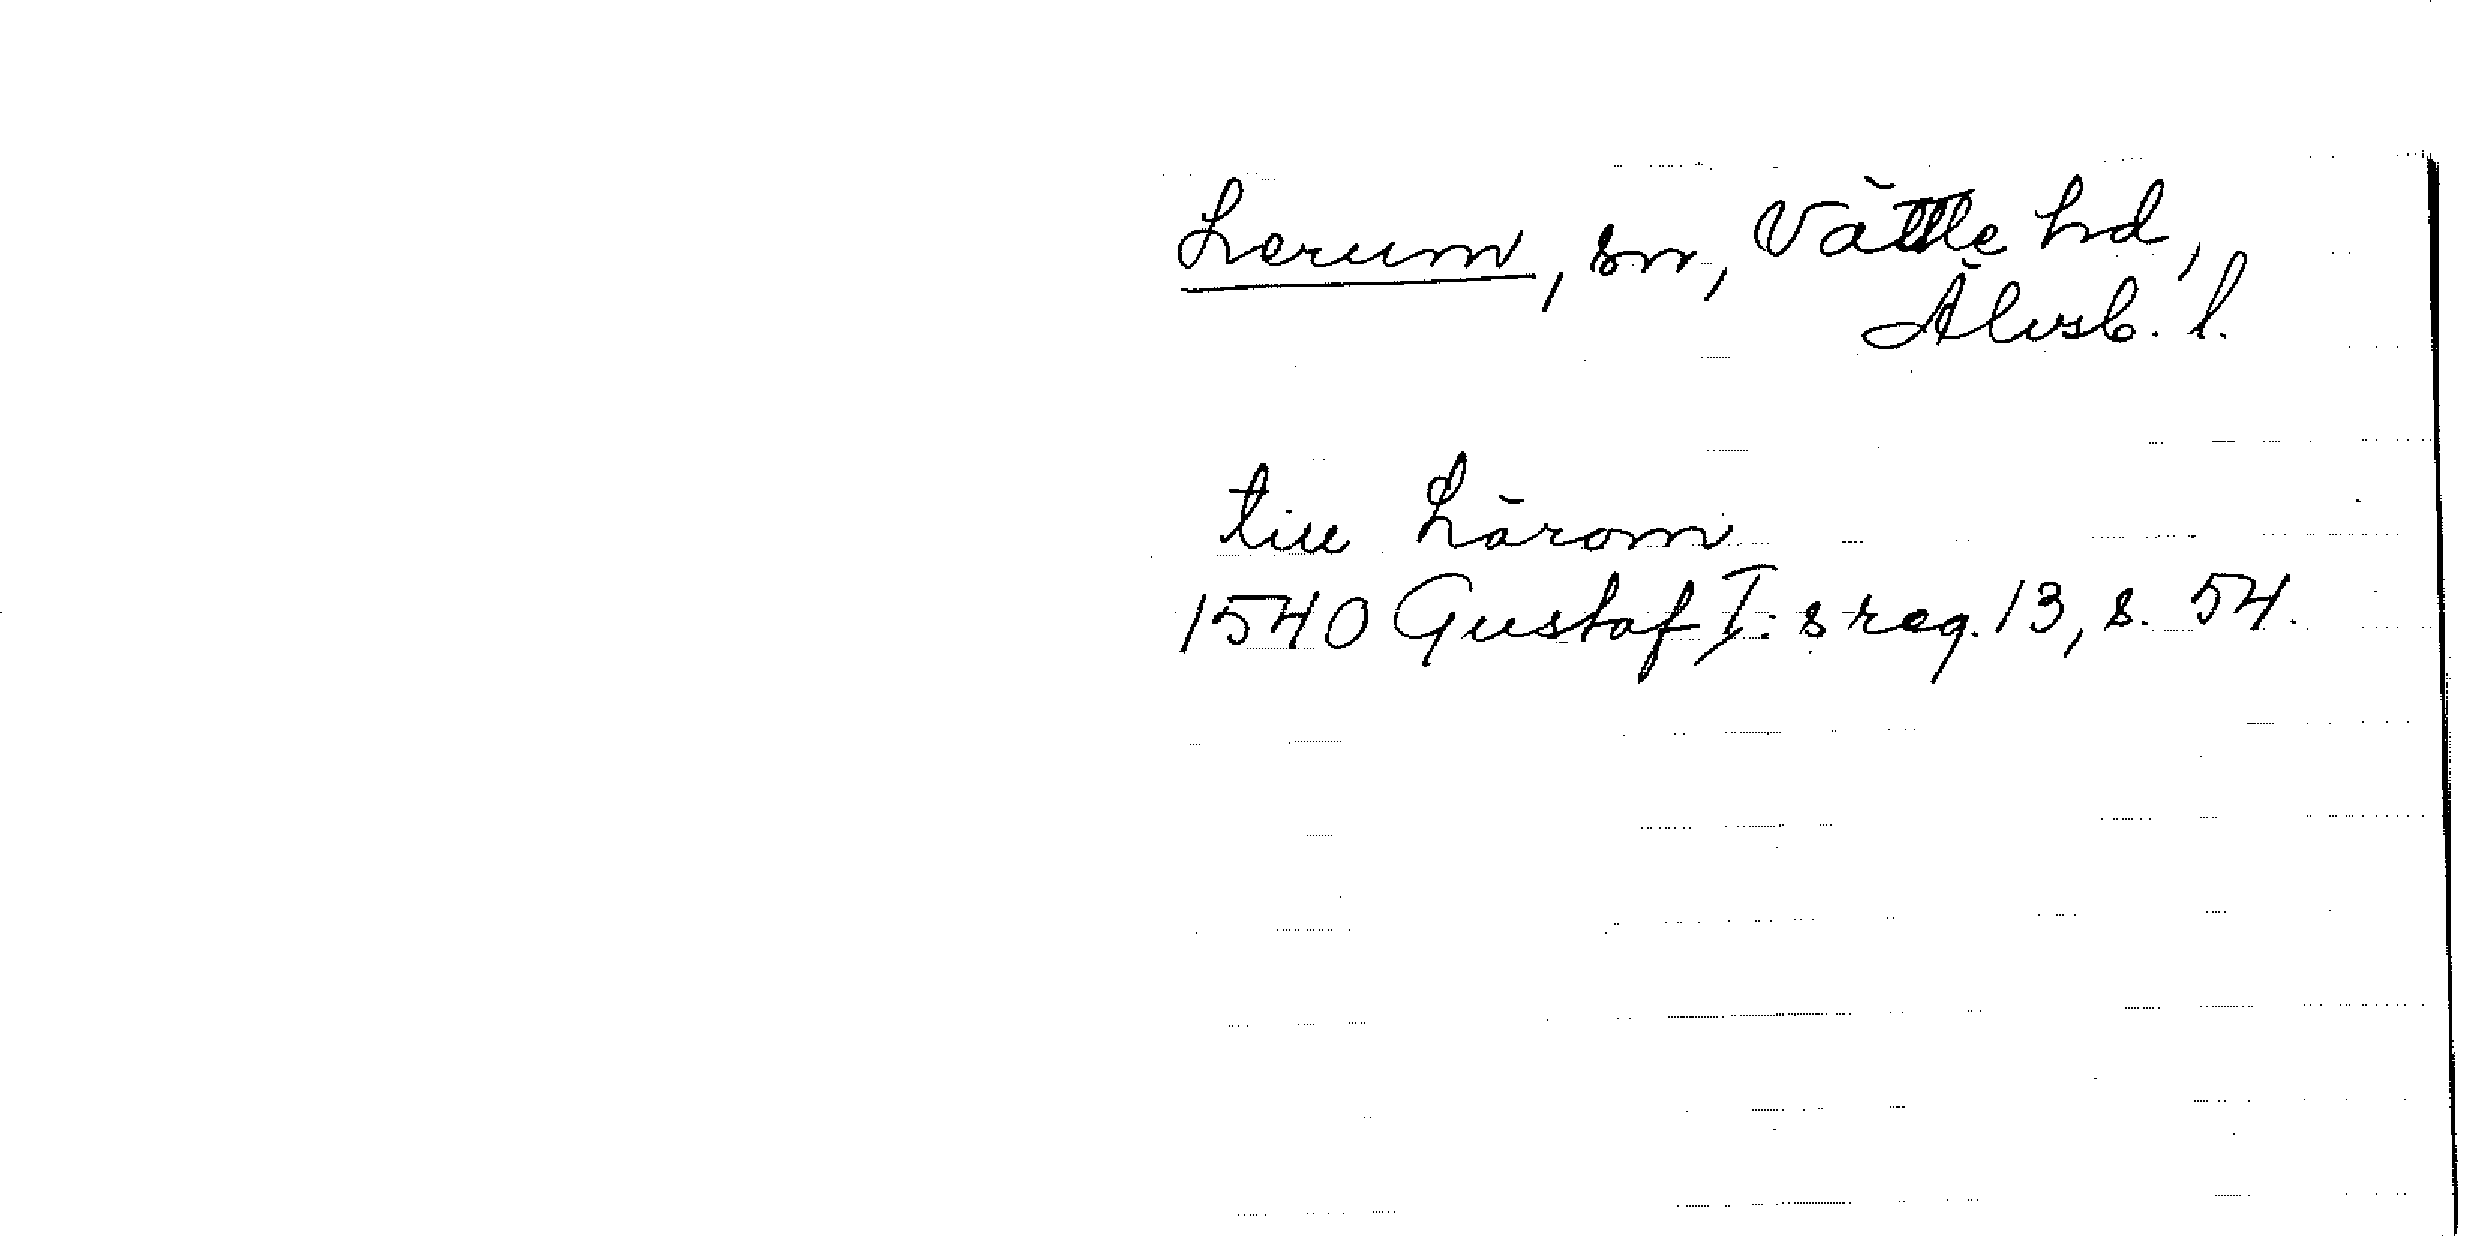 Lerum, sn, Vättle hd,
Älvsb. l.
till Lärom
1540 Gustaf I:s reg. 13, s. 54.